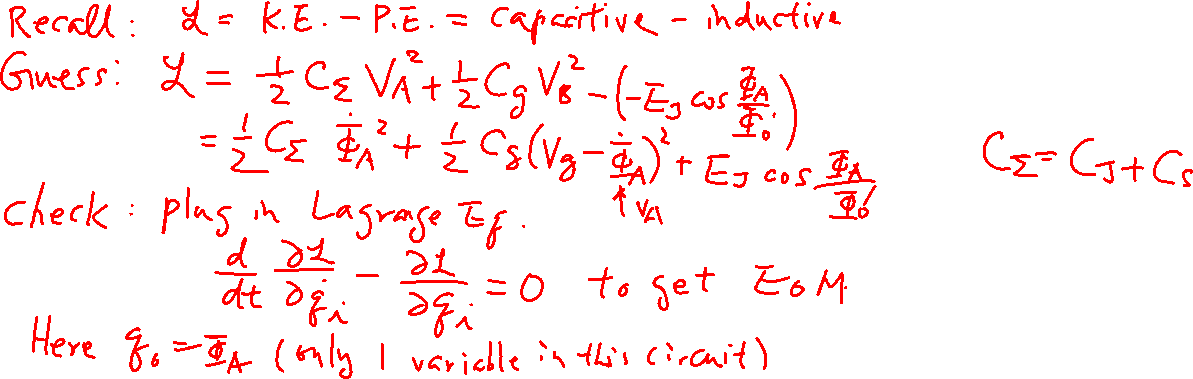 Recall: ℒ = K.E. - P.E. = capacitive - inductive
Guess: ℒ = 1/2 C_Σ V_A² + 1/2 C_g V_B² - (-E_J cos Φ_A/Φ_0')
= 1/2 C_Σ Φ̇_A² + 1/2 C_g (V_g - Φ̇_A)² + E_J cos Φ_A/Φ_0'
↑ V_A
C_Σ = C_J + C_S
check: plug in Lagrange Eq.
d/dt ∂ℒ/∂q̇_i - ∂ℒ/∂q_i = 0 to get EoM.
Here q_0 = Φ_A (only 1 variable in this circuit)